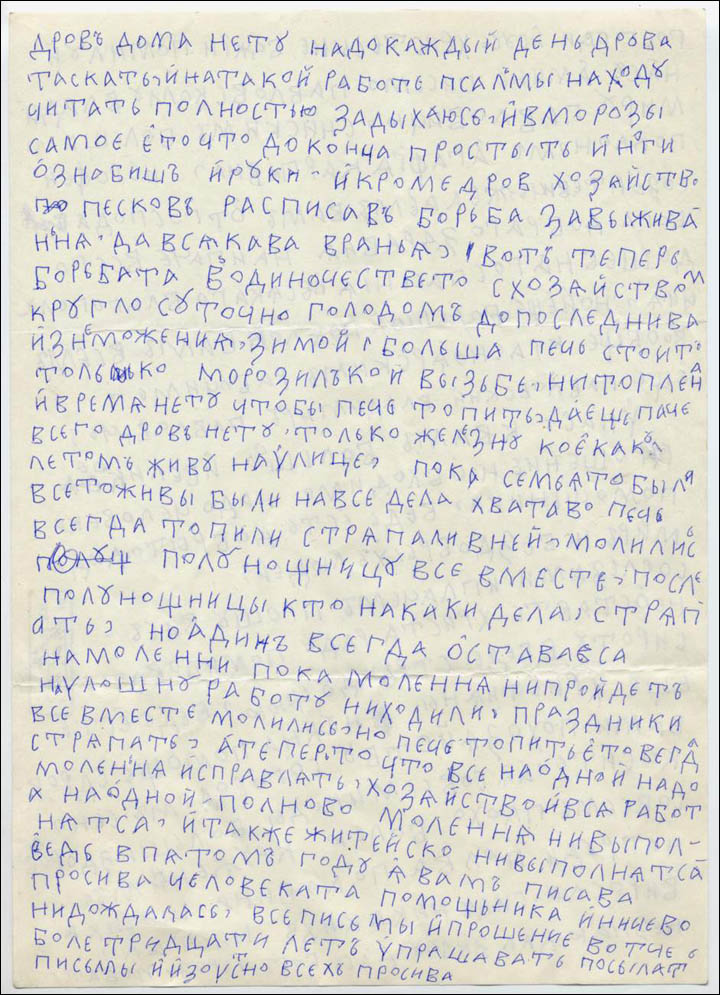 дровъ дома нету надокаждый день дрова
таскать, йнатакой работѣ псалмы находу
читать полностью задыхаюсь, йвморозы
самоє єточто доконча простыть йноги
ознобишъ йруки. йкромедров хозяйство
песковъ расписавъ борьба завыжива
нъна. давсякава вранья, вотъ теперь
борьбата водиночествето схозяйством
круглосуточно голодомъ допоследнива
йзнеможения, зимой, больша печь стоитъ
только морозилъкой вызьбе, нитоплена
йвремянету чтобы печь топить, даещь паче
всего дровънету, только железну коєкакъ,
летомъ живу наулице, пока семьятобыли
всетоживы были навсе дела хватаво печь
всегда топили стряпаливней, молились
полунощницу все вместе, после
полунощницы кто накаки дела, стряп
ать, но адинъ всегда оставався
намоленни пока моленна нипройдетъ
наулошну работу ниходили, праздники
всевместе молились, но печь топитьєтовегда
стряпать, атеперьто что все наодной надо
моленна исправлять, хозяйство йвся работ
а наодной. полново моленна нивыпол-
нятся, йтакже житейско нивыполнятся
ведь впятомъ году явамъ писава
просива человеката помошьника йничево
нидождалась, всеписьмы йпрошение вотче
боле тридцати летъ упрашавать посылат
письмы йизоустно всехъ просива